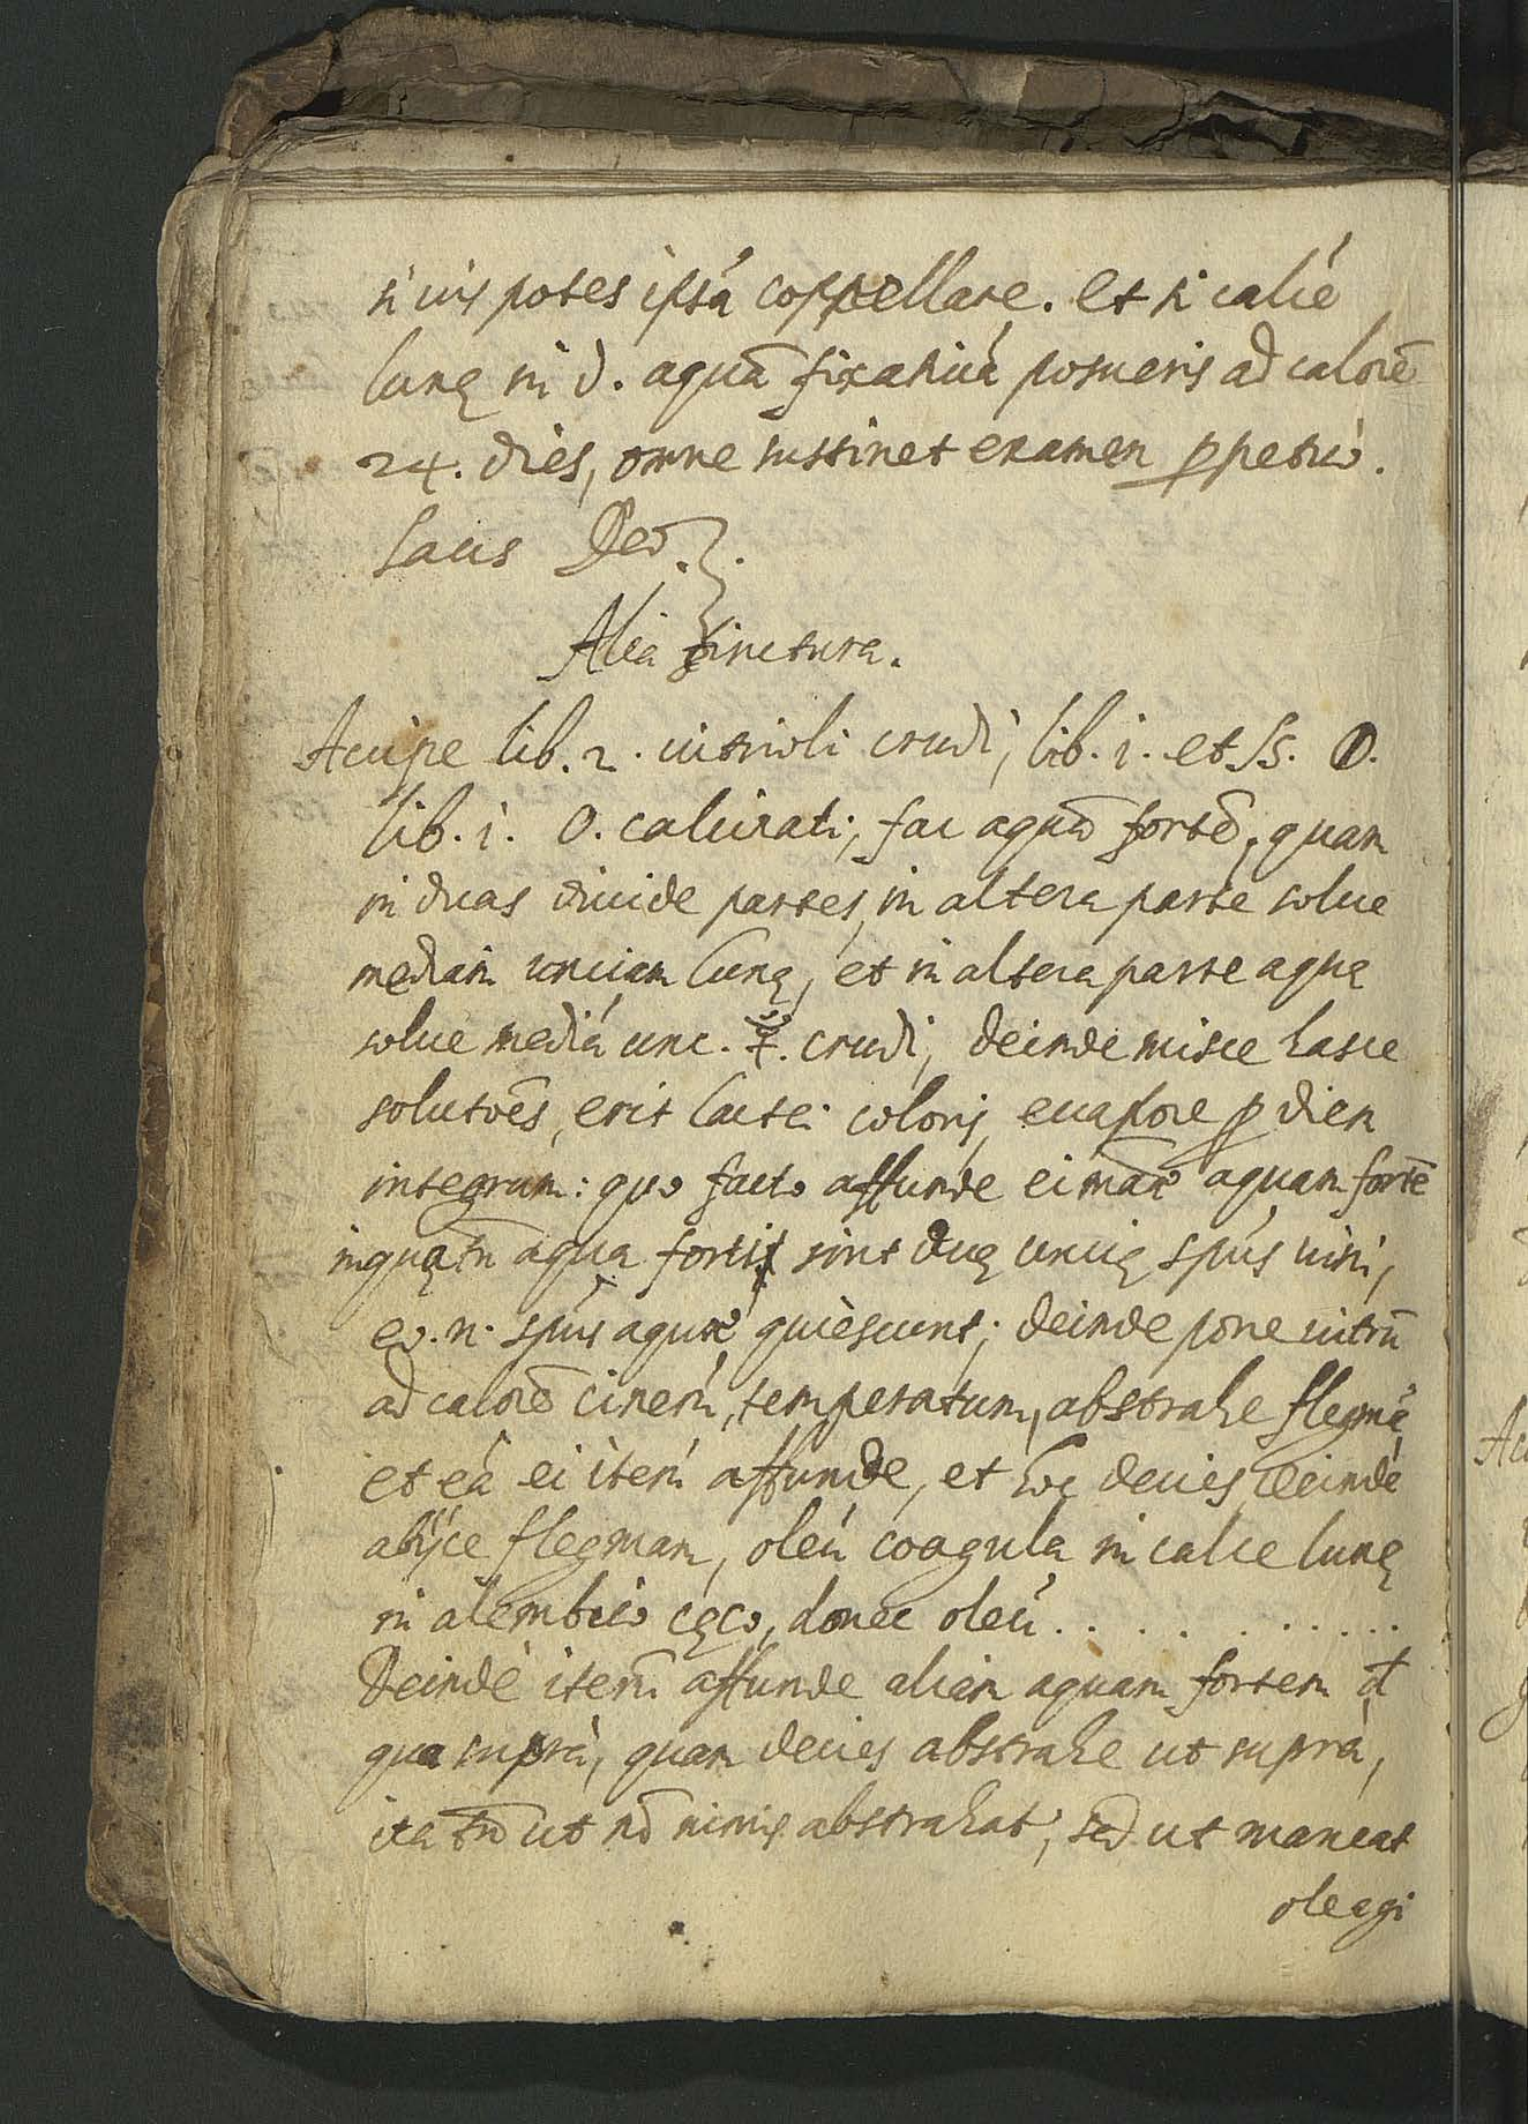 si vis potes ipsā coppellare. Et si calcē
lunę in d. aquā fixativā posueris ad calorē
24. dies, omne sustinet examen ꝑpetuò.
Laus Deo.
Alia tinctura.
Accipe lib. 2. vitrioli crudi, lib. i. et ß. 🜔.
lib. i. O. calcinati, fac aquā fortē, quam
in duas divide partes, in altera parte solve
mediam unciam lunę, et in altera parte aquę
solve mediā unc. ☿. crudi, deinde misce hasce
solutōes, erit lactei coloris, evapore ꝑ diem
integrum: quo facto affunde ei aquam fortē
in qua tn̄ aqua fortis sint duę uncię spūs vini,
eo. n. spūs aquæ quiescunt; deinde pone vitrū
ad calorē cinerū, temperatum, abstrahe flegmā
et eā ei iterū affunde, et hoc decies, deinde
abijce flegmam, oleū coagula in calce lunę
in alembico cęco, donec oleū . . . . . . . . . .
Deinde iterū affunde aliam aquam fortem ut
qua suprà, quam decies abstrahe ut suprà,
ita tn̄ ut nō nimis abstrahat, sed ut maneat
oleagi
Ac